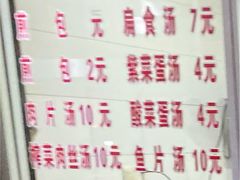 煎包 元 扁食汤 7元
煎包 2元 紫菜蛋汤 4元
肉片汤 10元 酸菜蛋汤 4元
榨菜肉丝汤 10元 鱼片汤 10元